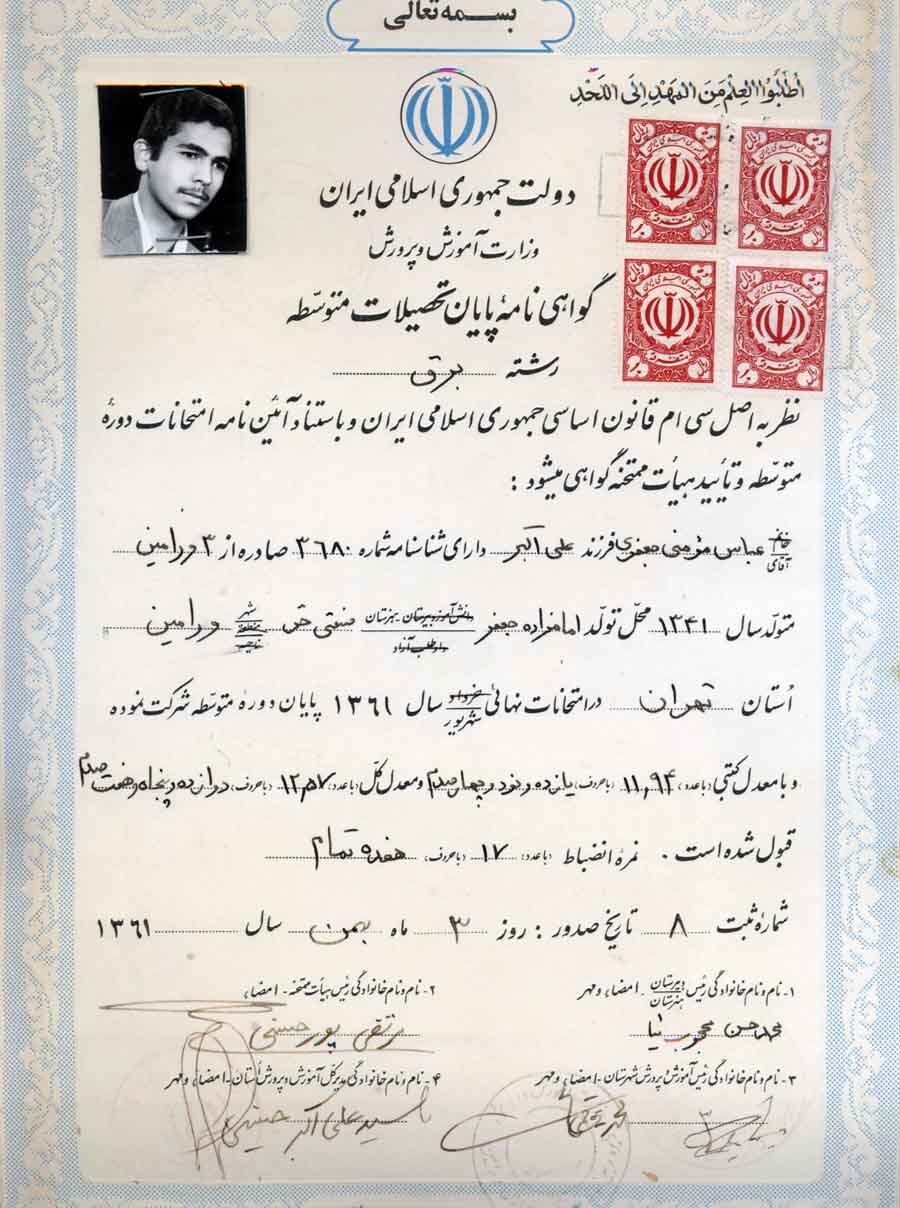 بسمه تعالی
اُطْلُبُوا العِلْمَ مِنَ المَهْدِ اِلَی اللَّحَدِ
دولت جمهوری اسلامی ایران
وزارت آموزش و پرورش
گواهی نامهٔ پایان تحصیلات متوسّطه
رشته برق
نظر به اصل سی ام قانون اساسی جمهوری اسلامی ایران و با ستناد آئین نامه امتحانات دورهٔ
متوسّطه و تأیید هیأت ممتحنه گواهی میشود :
خانم آقای عباس مؤمنی جعفری فرزند علی اکبر دارای شناسنامه شماره ۳۶۸۰ صادره از ۳ ورامین
متولّد سال ۱۳۴۱ محلّ تولّد امامزاده جعفر دانش آموز دبیرستان - هنرستان داوطلب آزاد صنعتی شهر ورامین
اُستان تهران در امتحانات نهائی خرداد شهریور سال ۱۳۶۱ پایان دورهٔ متوسّطه شرکت نموده
و با معدل کتبی (با عدد) ۱۱,۹۴ (با حروف) یازده و نود و چهار صدم و معدل کلّ (با عدد) ۱۲,۵۷ (با حروف) دوازده و پنجاه و هفت صدم
قبول شده است . نمرهٔ انضباط (با عدد) ۱۷ (با حروف) هفده تمام
شمارهٔ ثبت ۸ تاریخ صدور : روز ۳ ماه بهمن سال ۱۳۶۱
۱- نام و نام خانوادگی رئیس دبیرستان هنرستان - امضاء و مهر
۲- نام و نام خانوادگی رئیس هیأت ممتحنه - امضاء
محمد حسن محجوب نیا
مرتضی پور حسینی
۳- نام و نام خانوادگی رئیس آموزش و پرورش شهرستان - امضاء و مهر
۴- نام و نام خانوادگی مدیر کل آموزش و پرورش اُستان - امضاء و مهر
سید علی اکبر حسینی